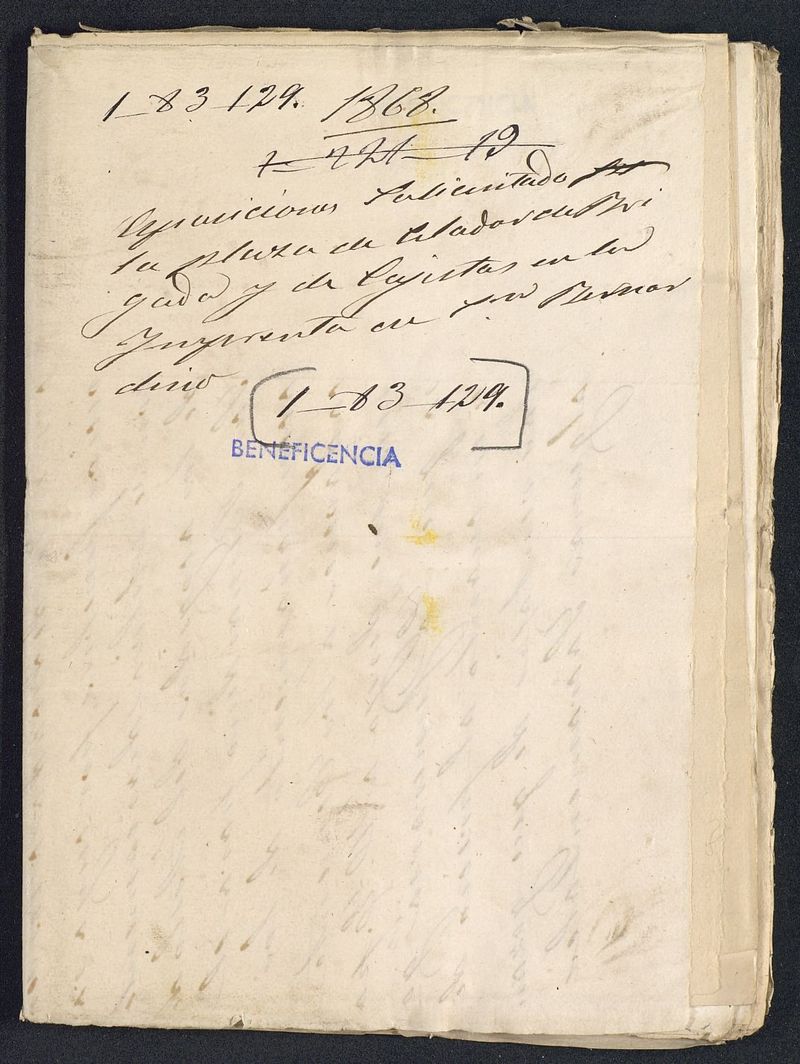 1-83-129. 1868.
1-221-19
Esposiciones Solicintado
la plaza de Celador de Bri
gada y de Cajistas en la
Imprenta de Sn Bernar
dino
1-83-129.
BENEFICENCIA